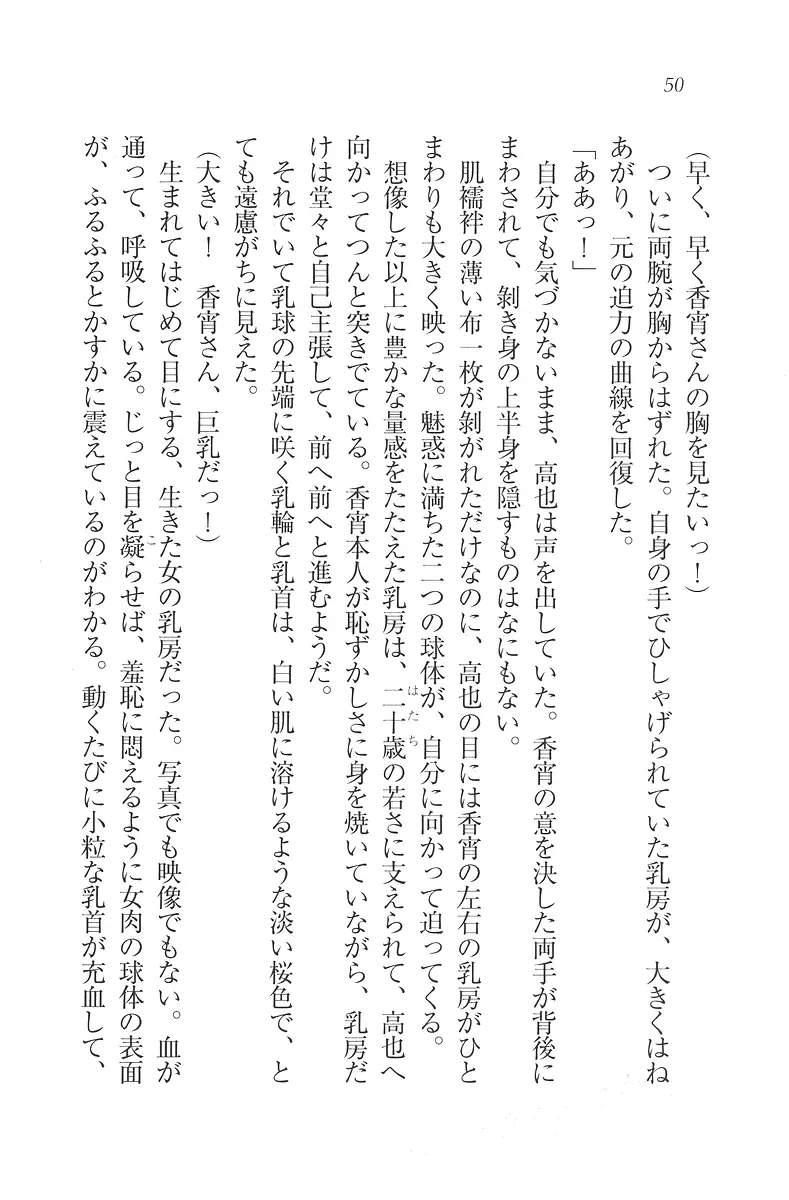 50
(早く、早く香宵さんの胸を見たいっ!)
　ついに両腕が胸からはずれた。自身の手でひしゃげられていた乳房が、大きくはね
あがり、元の迫力の曲線を回復した。
「ああっ!」
　自分でも気づかないまま、高也は声を出していた。香宵の意を決した両手が背後に
まわされて、剝き身の上半身を隠すものはなにもない。
　肌襦袢の薄い布一枚が剝がれただけなのに、高也の目には香宵の左右の乳房がひと
まわりも大きく映った。魅惑に満ちた二つの球体が、自分に向かって迫ってくる。
はたち
　想像した以上に豊かな量感をたたえた乳房は、二十歳の若さに支えられて、高也へ
向かってつんと突きでている。香宵本人が恥ずかしさに身を焼いていながら、乳房だ
けは堂々と自己主張して、前へ前へと進むようだ。
　それでいて乳球の先端に咲く乳輪と乳首は、白い肌に溶けるような淡い桜色で、と
ても遠慮がちに見えた。
(大きい!　香宵さん、巨乳だっ!)
　生まれてはじめて目にする、生きた女の乳房だった。写真でも映像でもない。血が
こ
通って、呼吸している。じっと目を凝らせば、羞恥に悶えるように女肉の球体の表面
が、ふるふるとかすかに震えているのがわかる。動くたびに小粒な乳首が充血して、